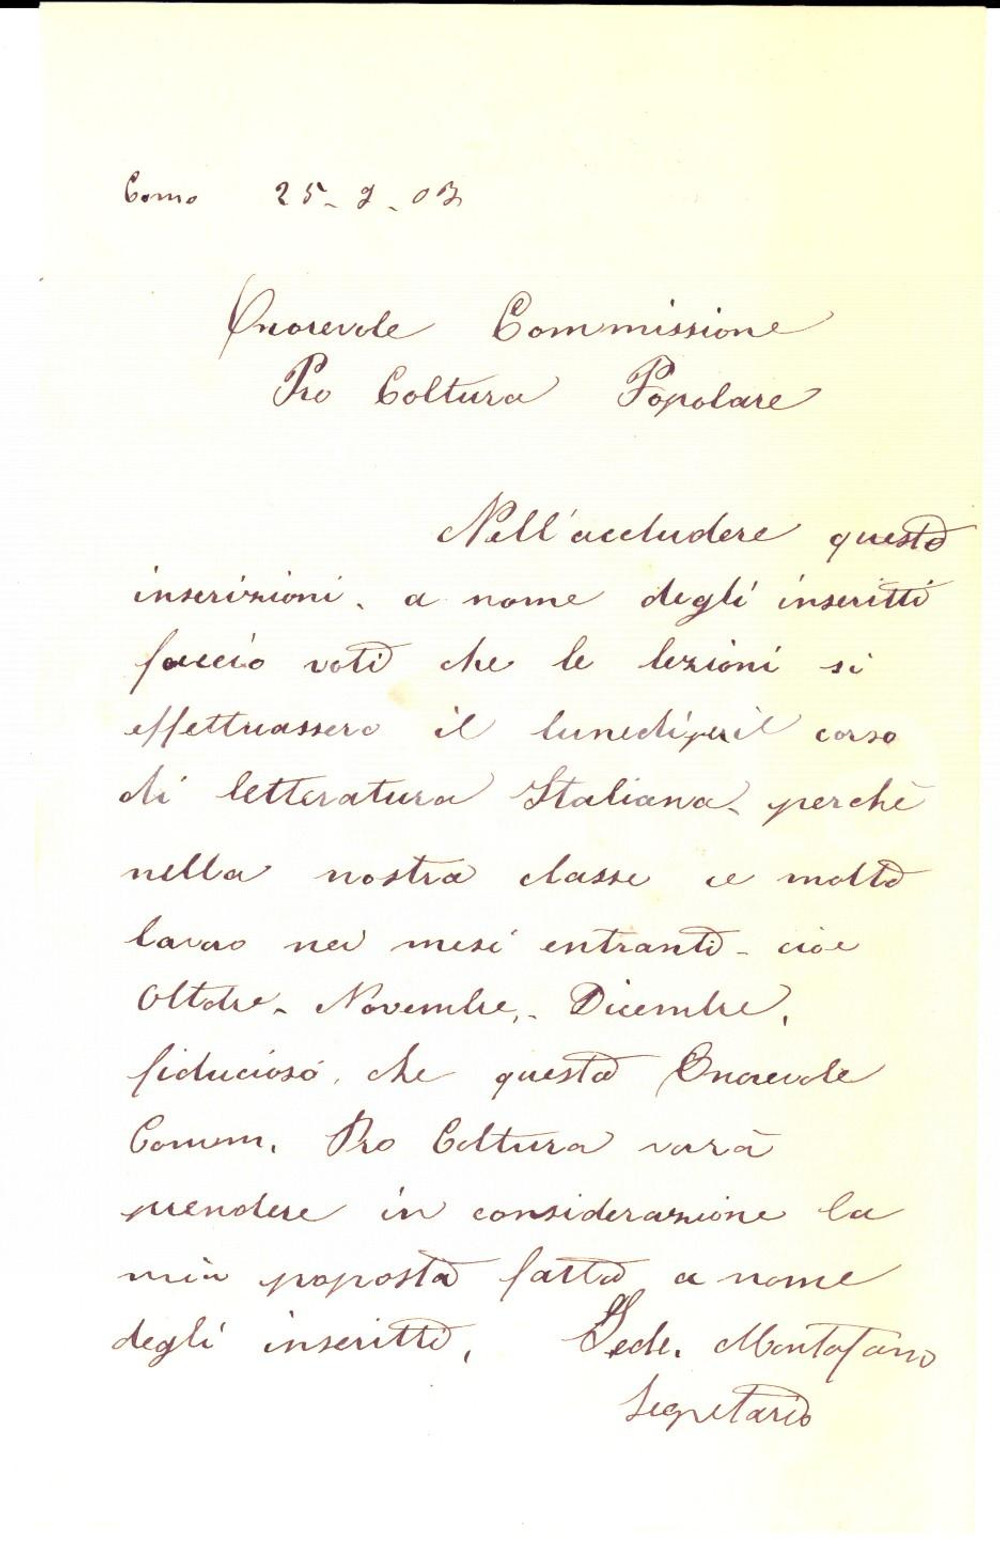 Como 25-9-03
Onorevole Commissione
Pro Coltura Popolare
Nell'accludere queste
inserizioni. a nome degli inseritti
faccio voti che le lezioni si
effettuassero il lunedi per il corso
di letteratura Italiana. perchè
nella nostra classe ce molto
lavoro nei mesi entranti - cioe
Ottobre - Novembre, - Dicembre.
fiducioso, che questa Onorevole
Comm. Pro Coltura vorà
prendere in considerazione la
mia poposta fatta a nome
degli inseritti,
Montofano
Segretario